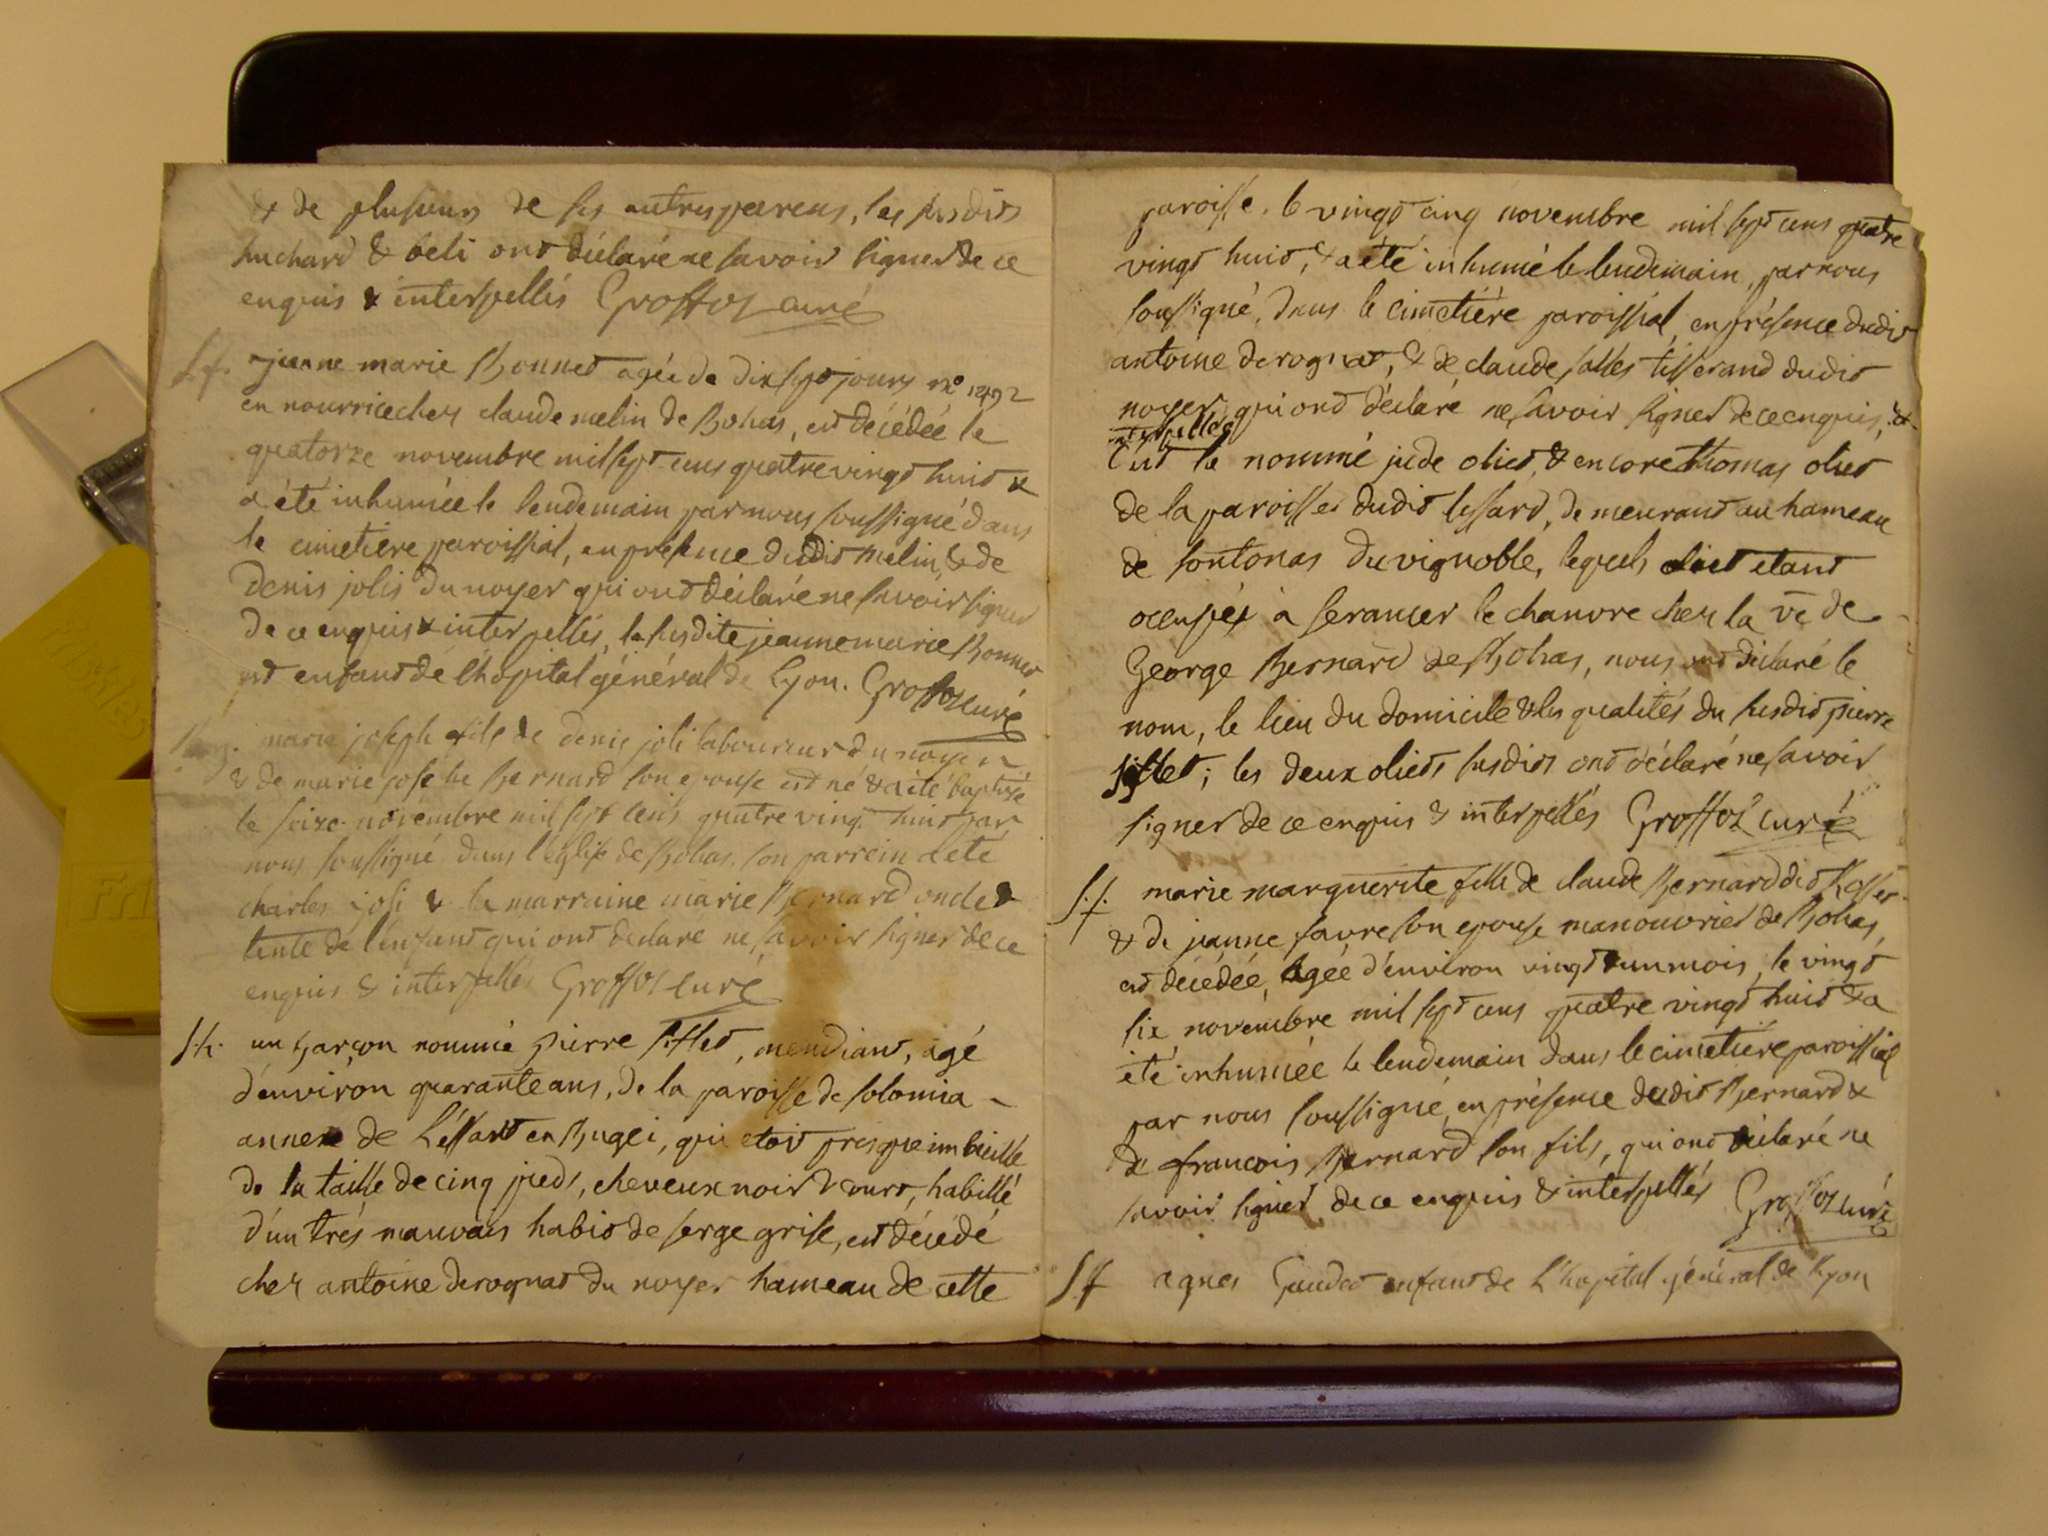 & de plusieurs de ses autres parens, les susdits
huchard & beli ont déclaré ne savoir signer de ce
enquis & interpellés Groffoz curé
S.f. jeanne marie Bonnet agée de dix sept jours n° 1292
en nourrice chez claude melin de Bohas, est décédée le
quatorze novembre mil sept cens quatre vingt huit &
a été inhumée le lendemain par nous soussigné dans
le cimetière paroissial, en présence dudit melin, & de
Denis joli du noyer qui ont déclaré ne savoir signer
de ce enquis & interpellés, la susdite jeanne marie Bonnet
est enfant de l'hôpital général de Lyon. Groffoz curé
marie joseph fils de denis joli laboureur du noyer
& de marie josephe Bernard son epouse est né & a été baptisé
le seize novembre mil sept cens quatre vingt huit par
nous soussigné dans l'église de Bohas. son parrein a été
charles joli & la marraine marie Bernard oncle &
tente de l'enfant qui ont déclaré ne savoir signer de ce
enquis & interpellés Groffoz curé
S.h. un garçon nommé pierre sifflet, mendiant, agé
d'environ quarante ans, de la paroisse de solomia
annexe de Léssart en Bugei, qui etoit presque imbécille
de la taille de cinq pieds, cheveux noir & court, habillé
d'un trés mauvais habit de serge grise, est décédé
chez antoine derognat du noyer hameau de cette
paroisse, le vingt cinq novembre mil sept cens quatre
vingt huit, & a été inhumé le lendemain, par nous
soussigné, dans le cimetière paroissial, en présence dudit
antoine derognat, & de claude salles tisserand dudit
noyer, qui ont déclaré ne savoir signer de ce enquis, &
interpellés
C'est le nommé jude oliet, & encore thomas oliet
de la paroisse dudit lessard, demeurant au hameau
de sontonas du vignoble, lequels oliet etant
occupés à serancer le chanvre chez la ve de
George Bernard de Bohas, nous ont déclaré le
nom, le lieu du domicile & les qualités du susdit pierre
sifflet; les deux oliets susdits ont déclaré ne savoir
signer de ce enquis & interpellés Groffoz curé
S.f. marie marguerite fille de claude Bernard dit
& de jeanne favre son epouse manouvrier de Bohas
est décédée, agée d'environ vingt & un mois, le vingt
six novembre mil sept cens quatre vingt huit & a
été inhumée le lendemain dans le cimetière paroissial
par nous soussigné, en présence dudit Bernard &
de francois Bernard son fils, qui ont déclaré ne
savoir signer de ce enquis & interpellés Groffoz curé
S.f agnes Gaudet enfant de L'hopital général de Lyon